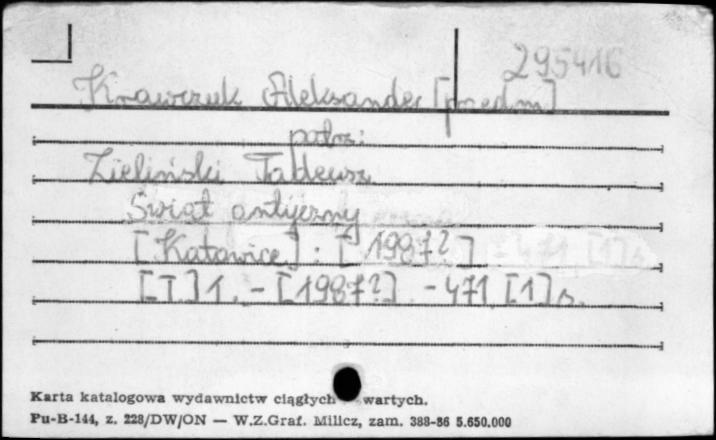 295416
Krawczuk Aleksander [przedm]
patrz:
Zieliński Tadeusz
Świat antyczny
[Katowice] : [1987?]
[T.] 1. - [1987?] - 471 [1] s.
Karta katalogowa wydawnictw ciągłych wartych.
Pu-B-144, z. 228/DW/ON — W.Z.Graf. Milicz, zam. 388-86 5.650.000